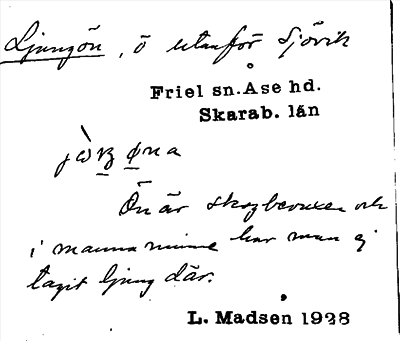 Ljungön, ö utanför Sjövik
Friel sn. Åse hd.
Skarab. län
Ön är skogbevuxen och
i mannaminne har man ej
tagit ljung där.
L. Madsen 1928